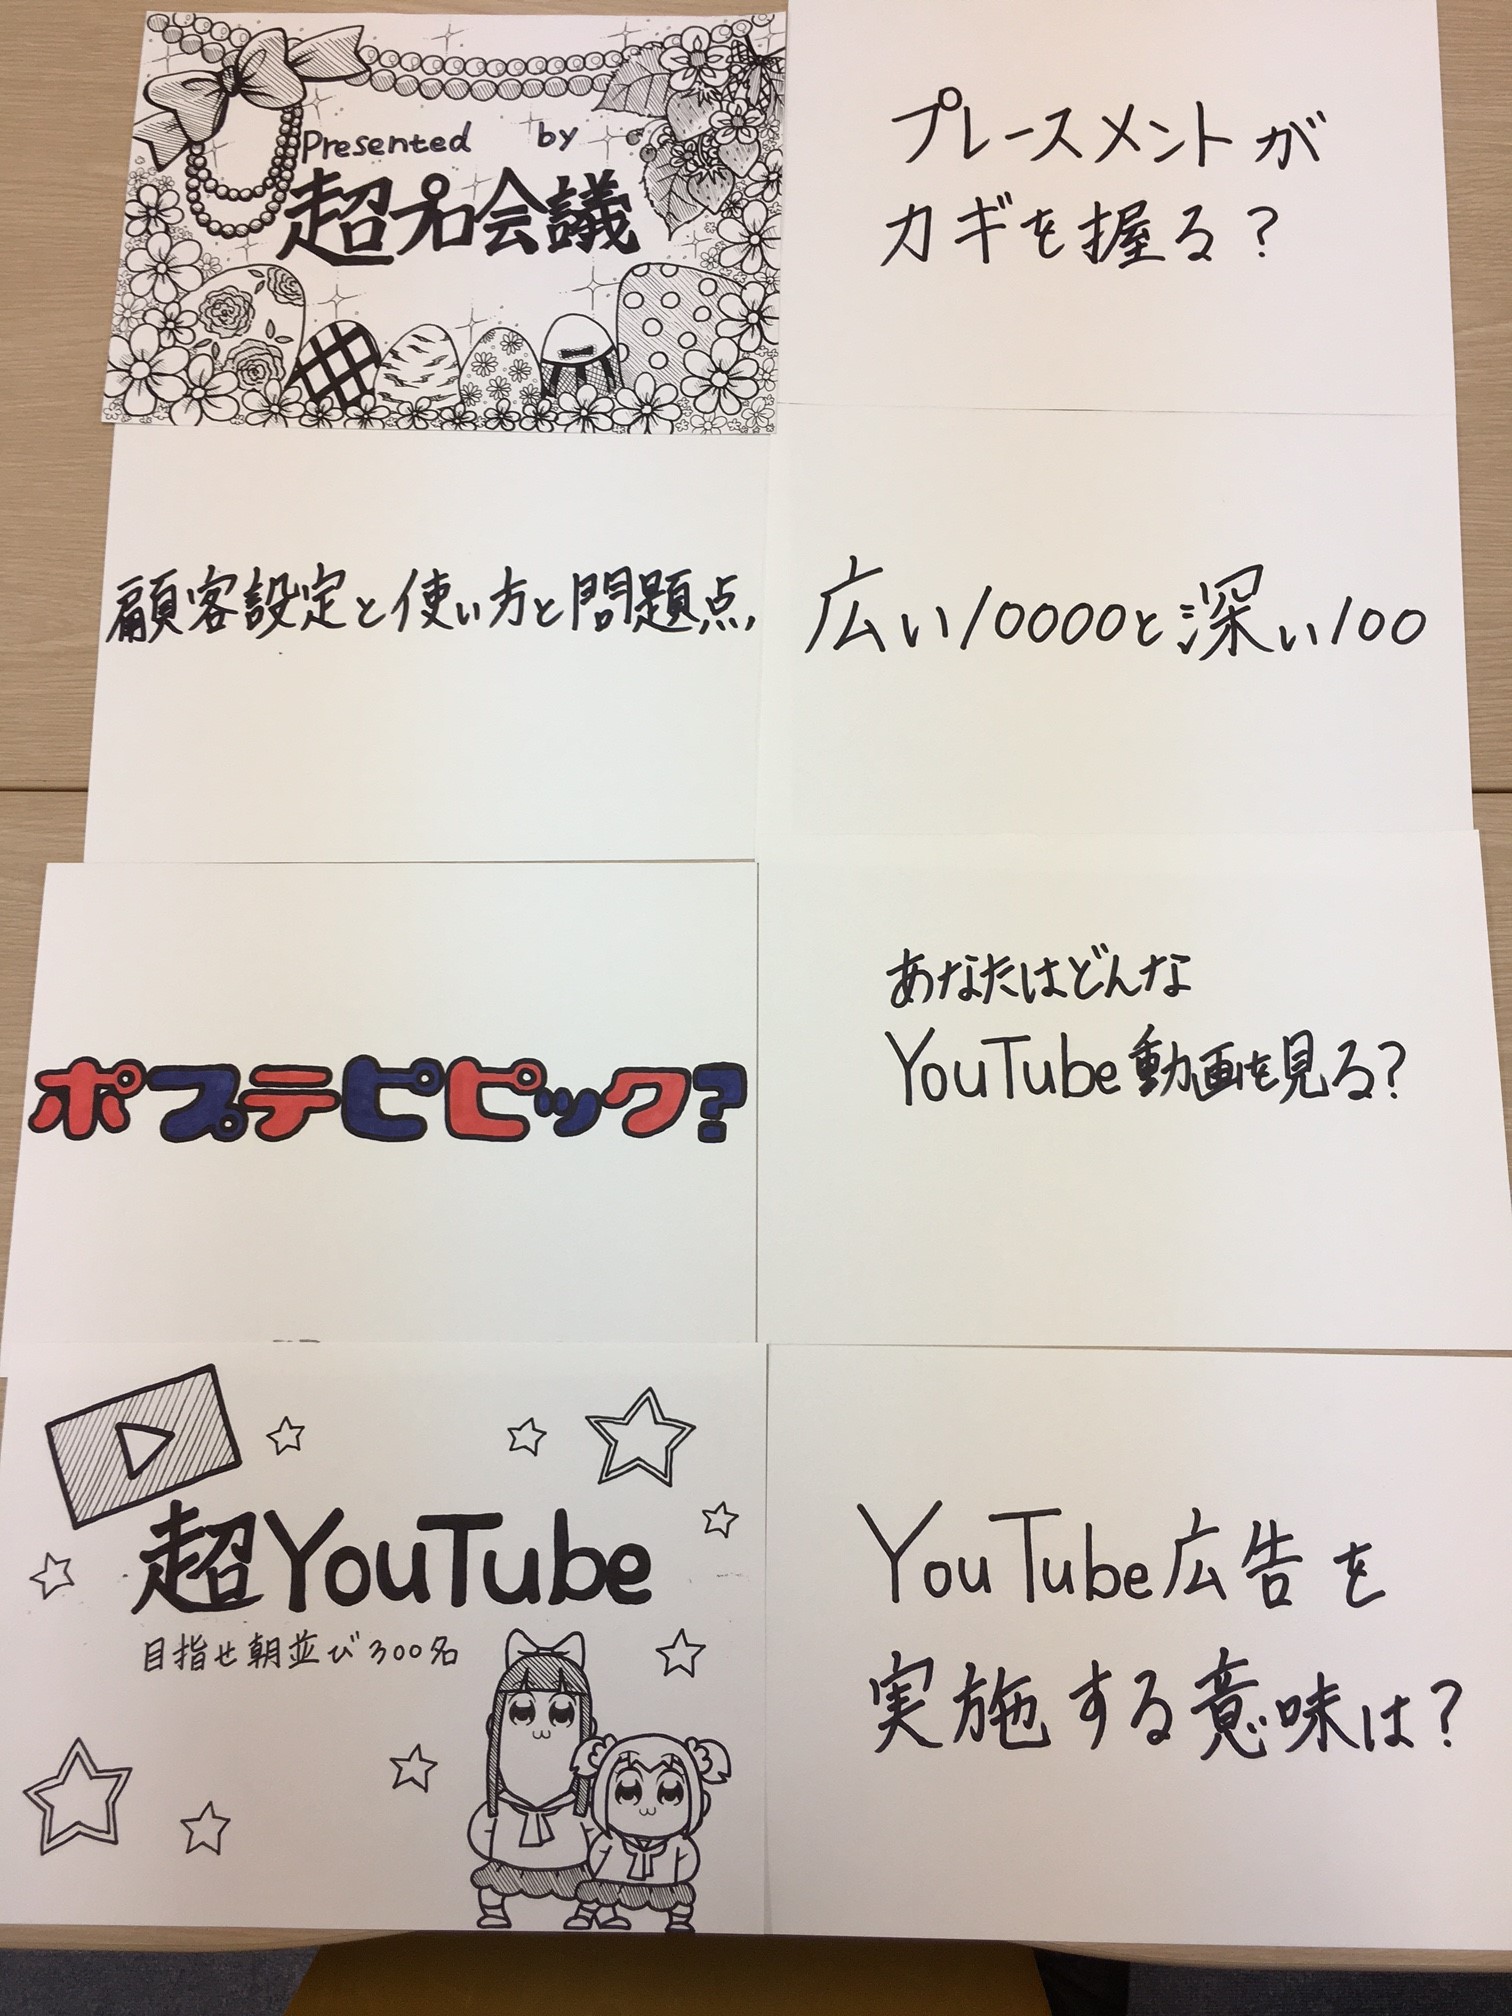 Presented by
超プロ会議
プレースメントが
カギを握る？
顧客設定と使い方と問題点
広い10000と深い100
ポプテピピック?
あなたはどんな
YouTube動画を見る?
超YouTube
目指せ朝並び300名
YouTube広告を
実施する意味は?